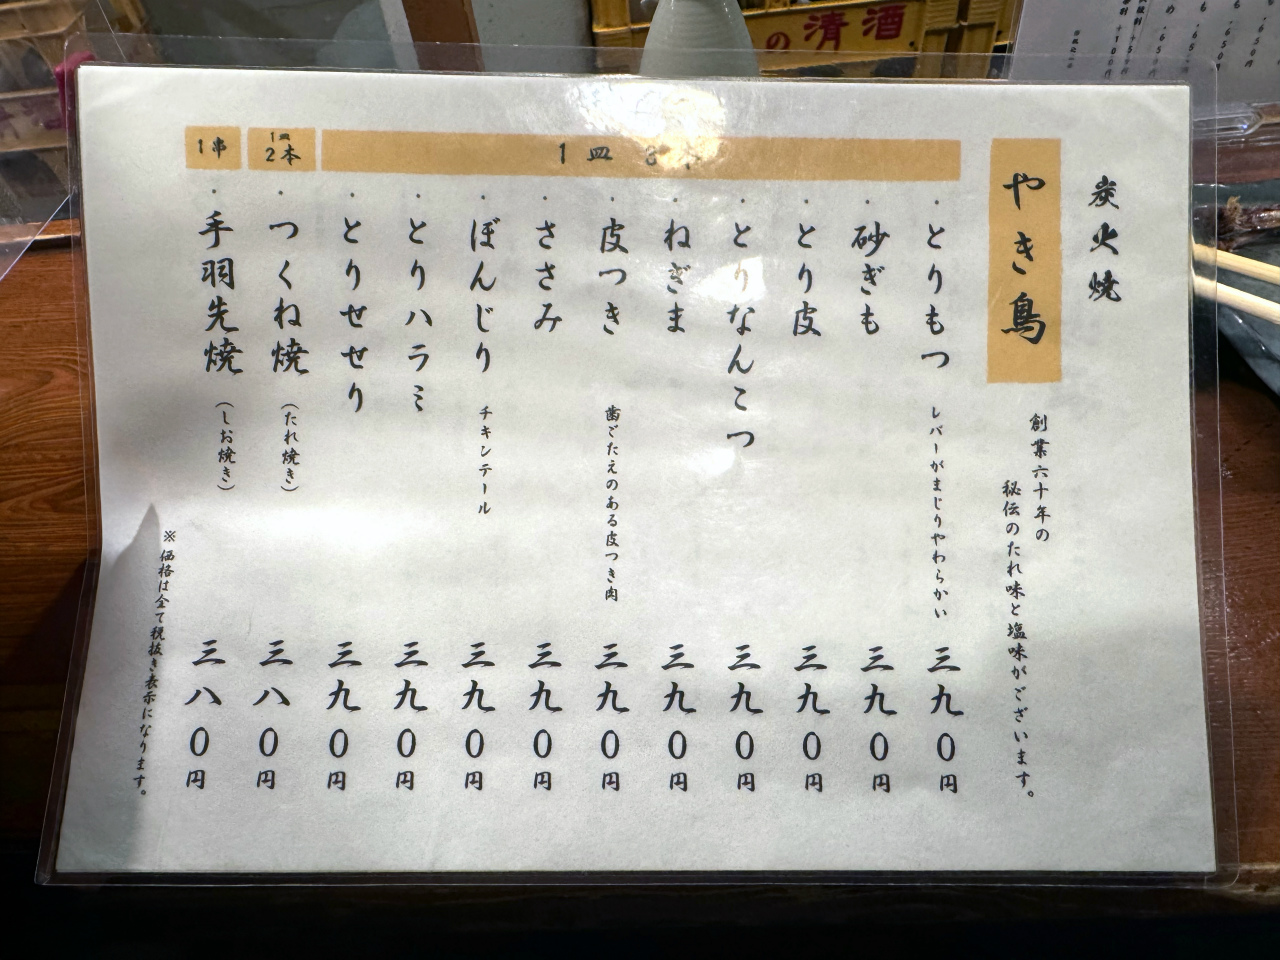 の清酒
炭火焼
やき鳥
創業六十年の
秘伝のたれ味と塩味がございます。
1皿
・とりもつ レバーがまじりやわらかい 三九0円
・砂ぎも 三九0円
・とり皮 三九0円
・とりなんこつ 三九0円
・ねぎま 三九0円
・皮つき 歯ごたえのある皮つき肉 三九0円
・ささみ 三九0円
・ぼんじり チキンテール 三九0円
・とりハラミ 三九0円
・とりせせり 三九0円
1皿
2本
・つくね焼(たれ焼き) 三八0円
1串
・手羽先焼(しお焼き) 三八0円
※価格は全て税抜き表示になります。